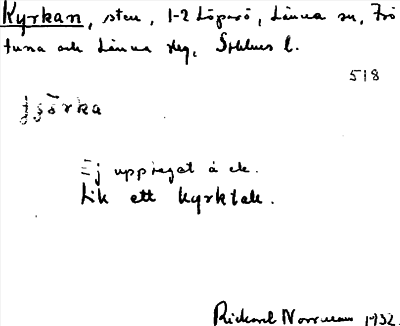 Kyrkan, sten, 1-2 Löparö, Länna sn, Frö
tuna och Länna skg, Sthlms l.
518
Ej uppteget å ek.
Lik ett kyrktak.
Rickard Norrman 1932.